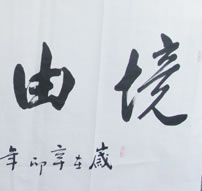 境由
歲在辛卯年